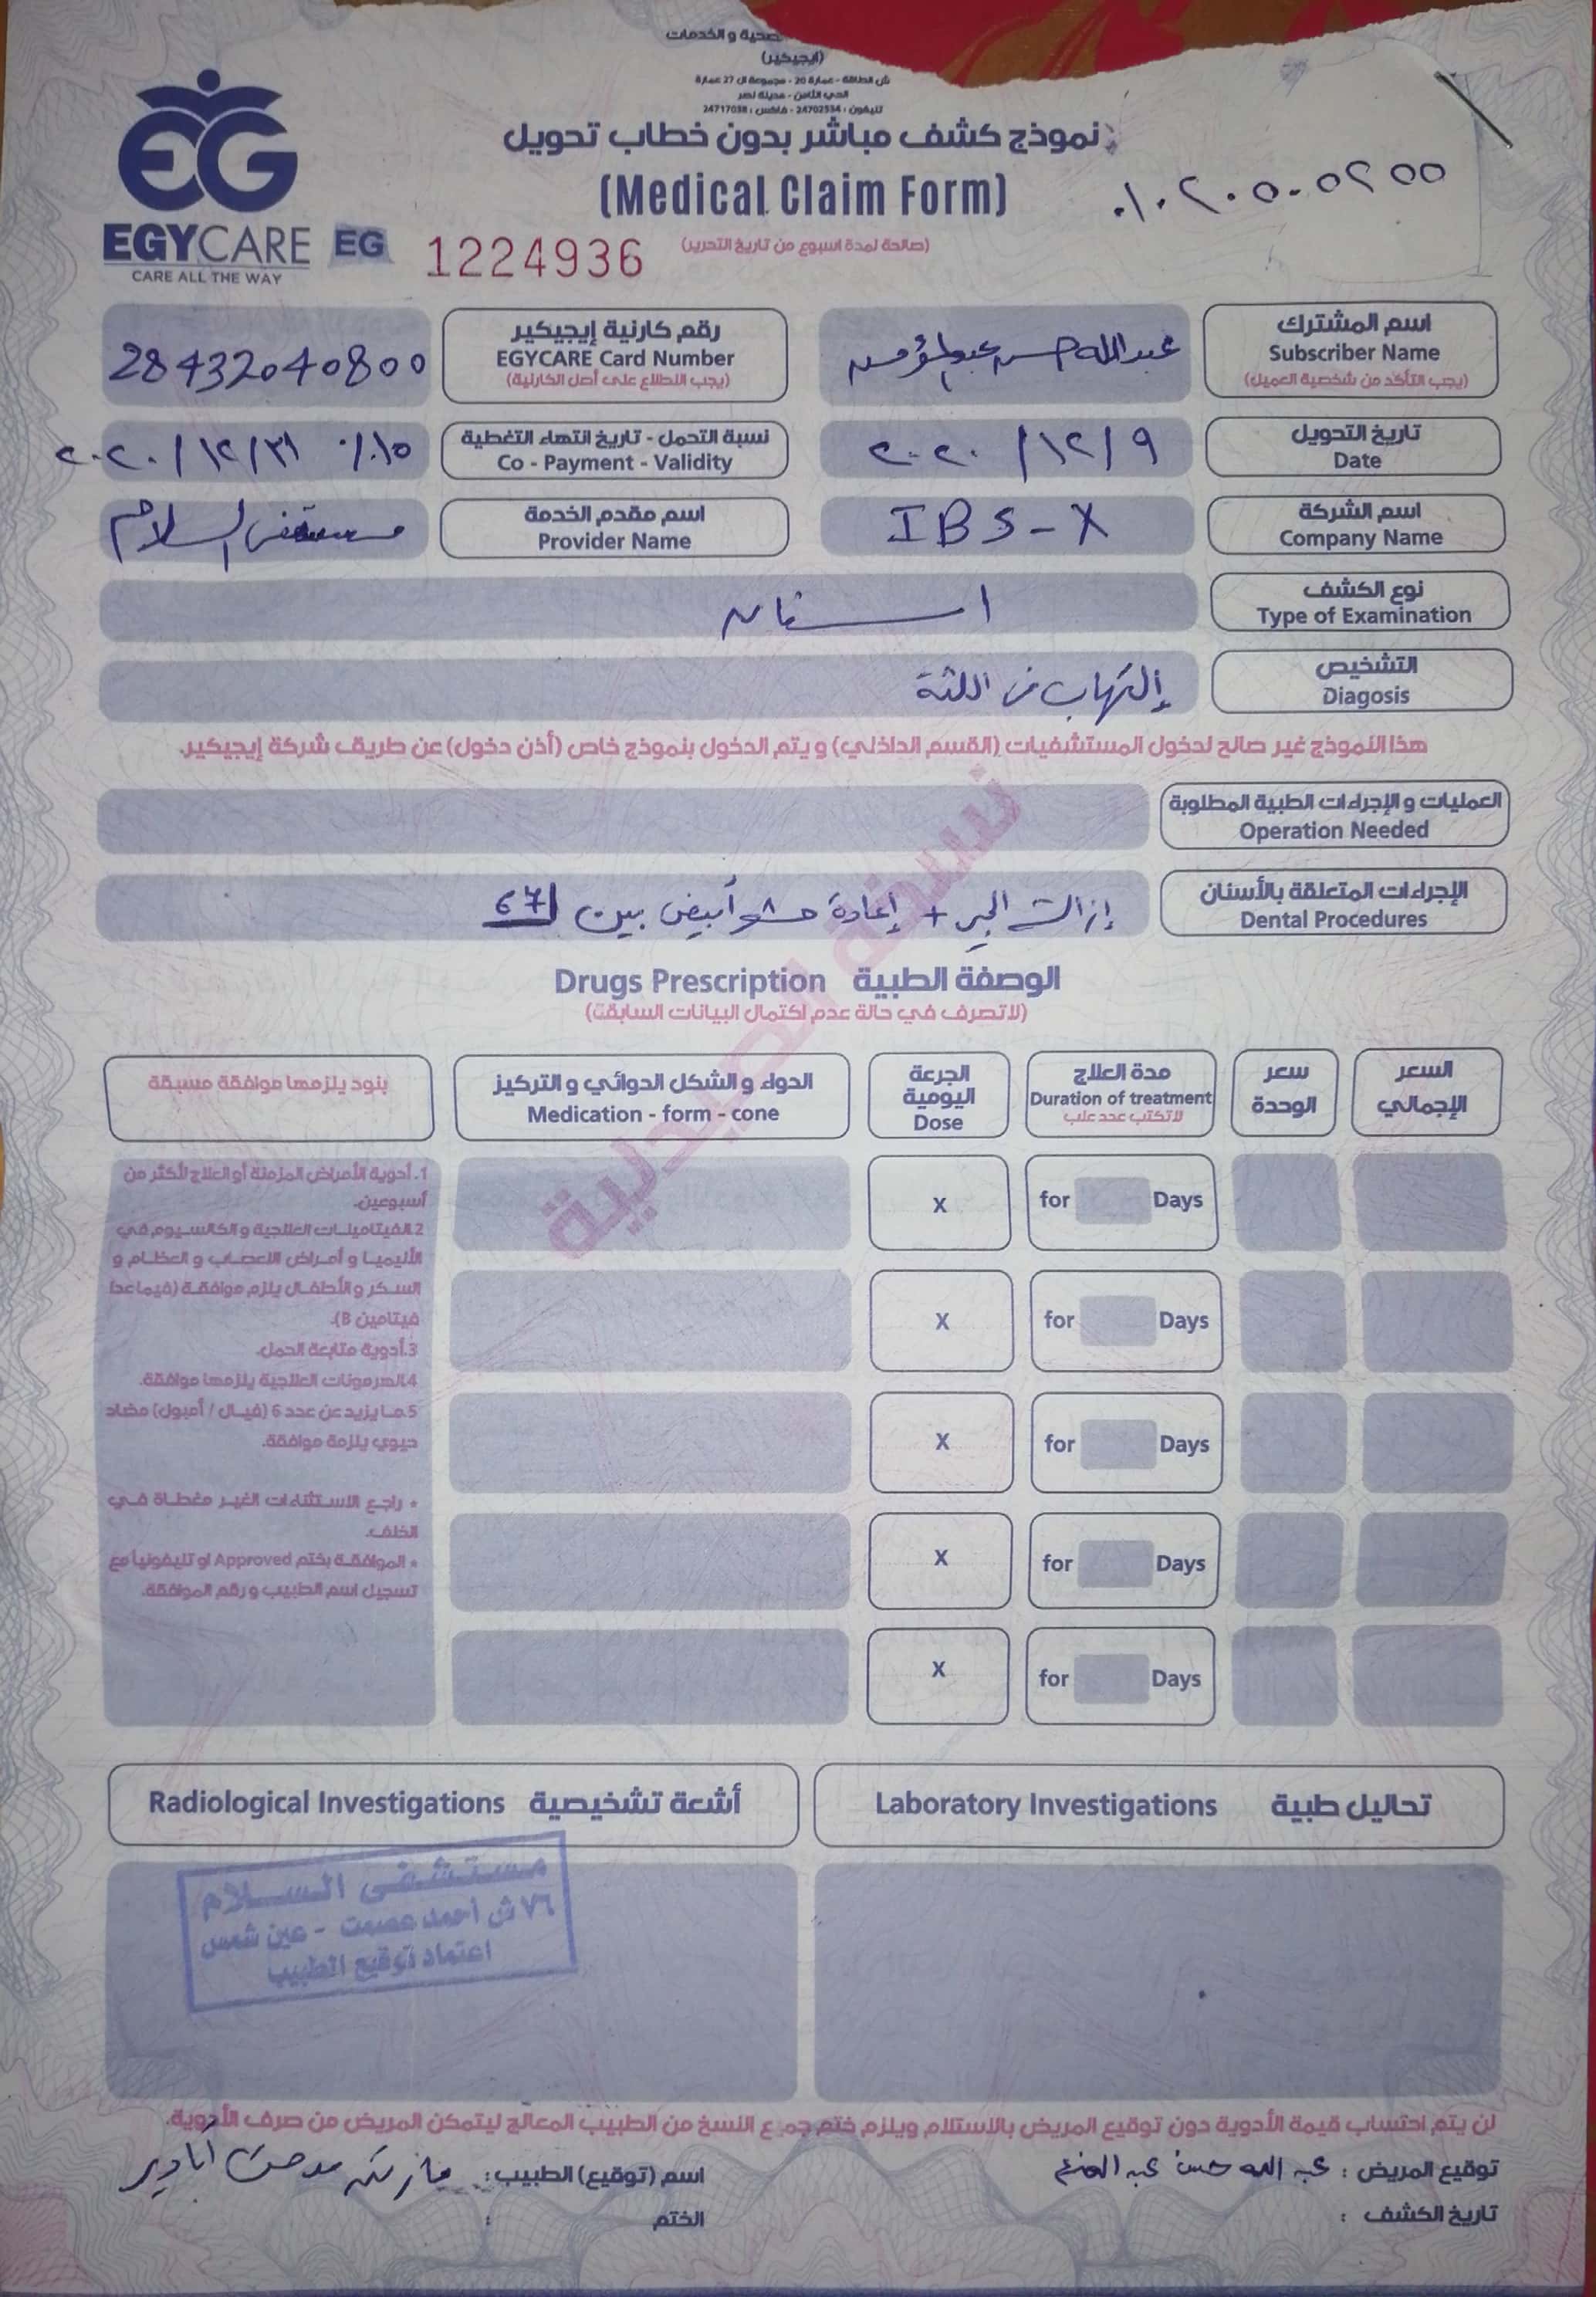 صحية و الخدمات
(ايجيكير)
ش الطاقة - عمارة 20 - مجموعة ال 27 عمارة
الحي الثامن - مدينة نصر
تليفون : 24702554 - فاكس : 24717038
نموذج كشف مباشر بدون خطاب تحويل
(Medical Claim Form)
٠١٠٢٠٥٠٥٢٥٥
EG
EGYCARE EG 1224936
(صالحة لمدة اسبوع من تاريخ التحرير)
CARE ALL THE WAY
اسم المشترك
Subscriber Name
(يجب التأكد من شخصية العميل)
عبدالله حسن
رقم كارنية إيجيكير
EGYCARE Card Number
(يجب الاطلاع على أصل الكارنية)
28432040800
تاريخ التحويل
Date
٢٠٢٠/١٢/٩
نسبة التحمل - تاريخ انتهاء التغطية
Co - Payment - Validity
٪١٥ ٢٠٢٠/١٢/٣١
اسم الشركة
Company Name
IBS-X
اسم مقدم الخدمة
Provider Name
مستشفى السلام
نوع الكشف
Type of Examination
اسنان
التشخيص
Diagosis
إلتهاب فى اللثة
هذا النموذج غير صالح لدخول المستشفيات (القسم الداخلي) و يتم الدخول بنموذج خاص (أذن دخول) عن طريق شركة إيجيكير.
العمليات و الإجراءات الطبية المطلوبة
Operation Needed
الإجراءات المتعلقة بالأسنان
Dental Procedures
إزالة الجير + إعادة حشو أبيض بين 67
نسخة الصيدلية
Drugs Prescription الوصفة الطبية
(لاتصرف في حالة عدم اكتمال البيانات السابقة)
السعر الإجمالي
سعر الوحدة
مدة العلاج
Duration of treatment
لاتكتب عدد علب
الجرعة اليومية
Dose
الدواء و الشكل الدوائي و التركيز
Medication - form - cone
بنود يلزمها موافقة مسبقة
x for Days
x for Days
x for Days
x for Days
x for Days
1. أدوية الأمراض المزمنة أو العلاج لأكثر من
أسبوعين.
2.الفيتامينات العلاجية و الكالسيوم في
الأنيميا و أمراض الاعصاب و العظام و
السكر و الأطفال يلزم موافقة (فيما عدا
فيتامين B).
3.أدوية متابعة الحمل.
4.الهرمونات العلاجية يلزمها موافقة.
5.ما يزيد عن عدد 6 (فيال / أمبول) مضاد
حيوي يلزمة موافقة.
* راجع الاستثناءات الغير مغطاة في
الخلف.
* الموافقة بختم Approved او تليفونيا مع
تسجيل اسم الطبيب و رقم الموافقة.
تحاليل طبية Laboratory Investigations
أشعة تشخيصية Radiological Investigations
مستشفى السلام
٧٦ ش أحمد عصمت - عين شمس
اعتماد توقيع الطبيب
لن يتم احتساب قيمة الأدوية دون توقيع المريض بالاستلام ويلزم ختم جميع النسخ من الطبيب المعالج ليتمكن المريض من صرف الأدوية.
توقيع المريض : عبد الله حسن عبد
اسم (توقيع) الطبيب : مدحت
تاريخ الكشف :
الختم :